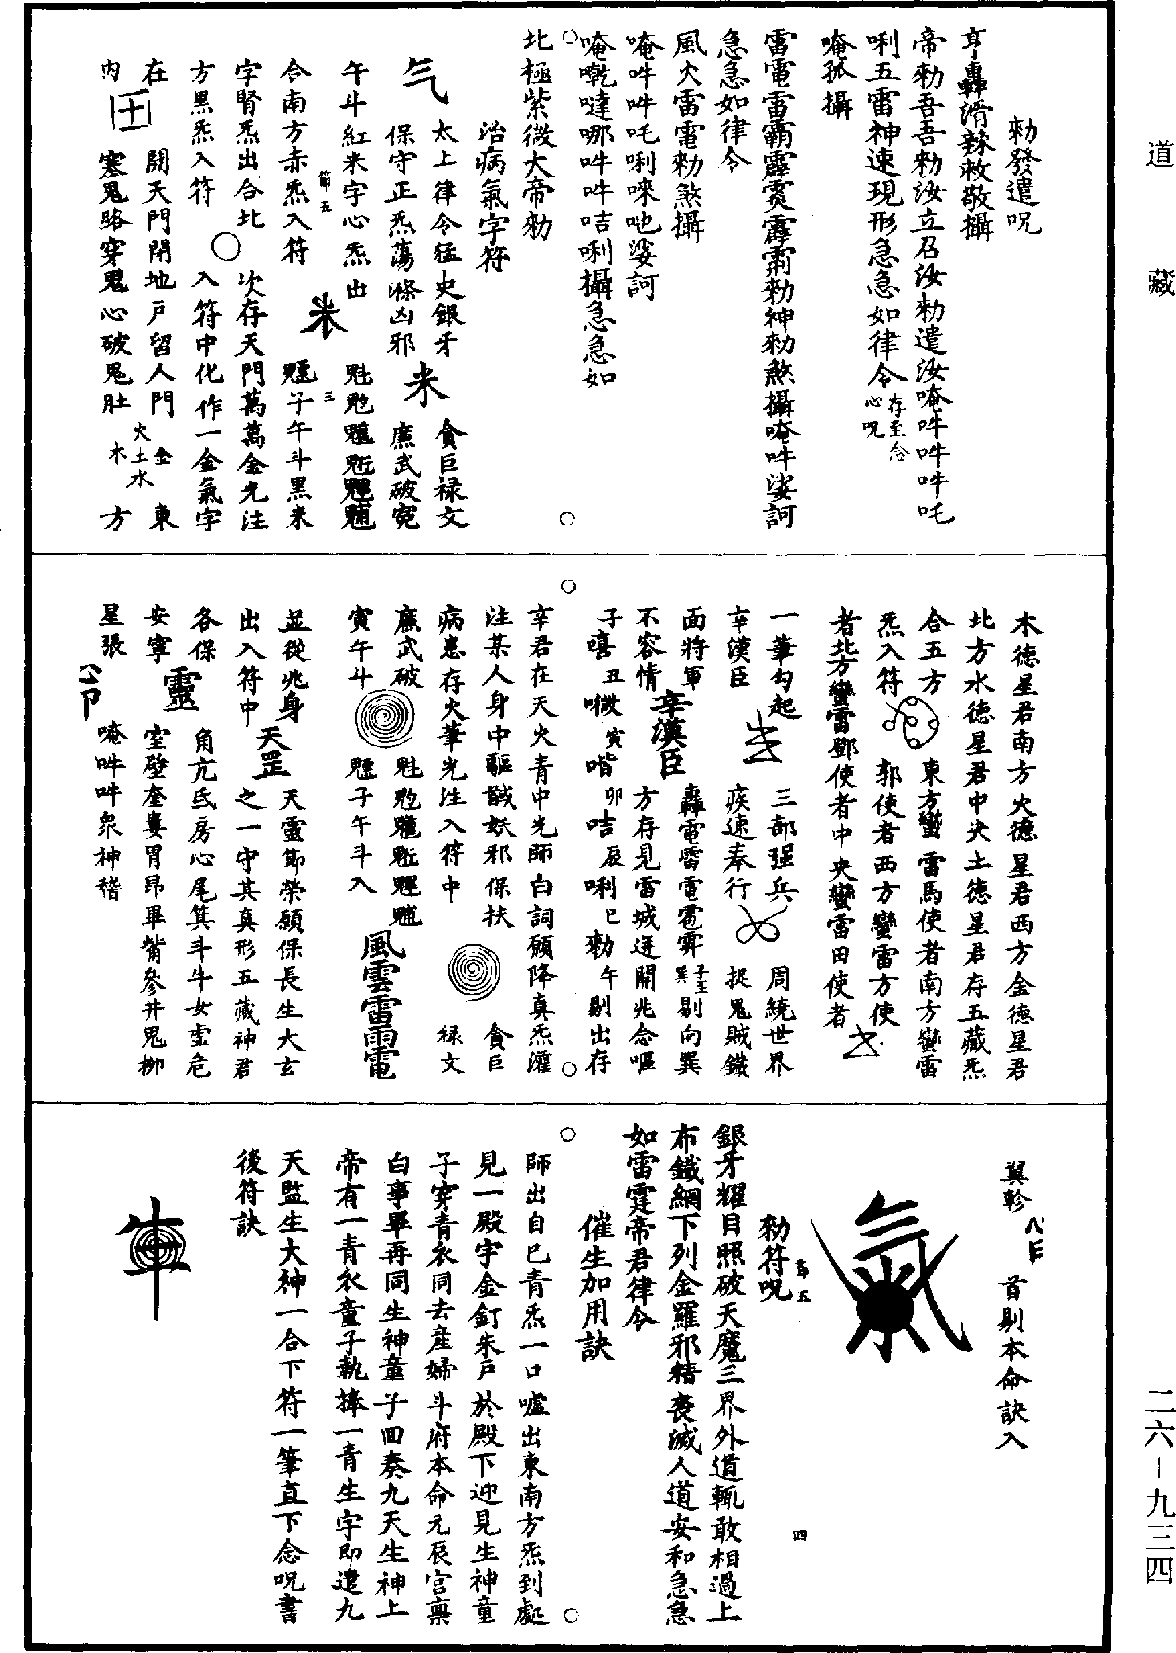 道藏
勑發遣呪
亨轟滑辣敕敬攝
帝勑吾吾勑汝立召汝勑遣汝唵吽吽吽吒
唎五雷神速現形急急如律令存至合心呪
唵孤攝
雷電雷霸霹靂霹霸勑神勑煞攝唵吽娑訶
急急如律令
風火雷電勑煞攝
唵吽吽吒唎唻吔娑訶
唵嚩噠哪吽吽咭唎攝急急如
北極紫微大帝勑
治病氣字符
气 太上律令猛吏銀牙 貪巨祿文
保守正炁蕩滌凶邪 米 廉武破寅
午斗紅米字心炁出 魁
合南方赤炁入符 米 子午斗黑米
字腎炁出合北 次存天門萬萬金光注
方黑炁入符 入符中化作一金氣字
在 開天門閉地戶留人門 金 東
內 塞鬼路穿鬼心破鬼肚 火土水 木 方
木德星君南方火德星君西方金德星君
北方水德星君中央土德星君存五藏炁
合五方 東方蠻雷馬使者南方蠻雷
炁入符 郭使者西方蠻雷方使
者北方蠻雷鄧使者中央蠻雷田使者
一筆勾起 三部強兵 周繞世界
辛漢臣 疾速奉行 捉鬼賊鐵
面將軍 轟電雷電 剔向巽
不容情 辛漢臣 方存見雷城迸開兆念嘔
子嘻丑 寅喈卯咭辰唎巳勑午剔出存
辛君在天火青中光師白詞願降真炁灌
注某人身中驅馘妖邪保扶 貪巨
病患存火筆光注入符中 祿文
廉武破 魁 風雲雷雨電
寅午斗 子午斗入
並從兆身 天罡 天靈節榮願保長生大玄
出入符中 之一守其真形五藏神君
各保 靈 角亢氐房心尾箕斗牛女虛危
安寧 室壁奎婁胃昴畢觜參井鬼柳
星張 唵吽吽眾神稽
翼軫 首剔本命訣入
氣
勑符呪
銀牙耀目照破天魔三界外道輒敢相過上
布鐵網下列金羅邪精喪滅人道安和急急
如雷霆帝君律令
催生加用訣
師出自已青炁一口噓出東南方炁到處
見一殿宇金釘朱戶於殿下迎見生神童
子穿青衣同去產婦斗府本命元辰宮稟
白事畢再同生神童子回奏九天生神上
帝有一青衣童子執捧一青生字即遣九
天監生大神一合下符一筆直下念呪書
後符訣
二六—九三四